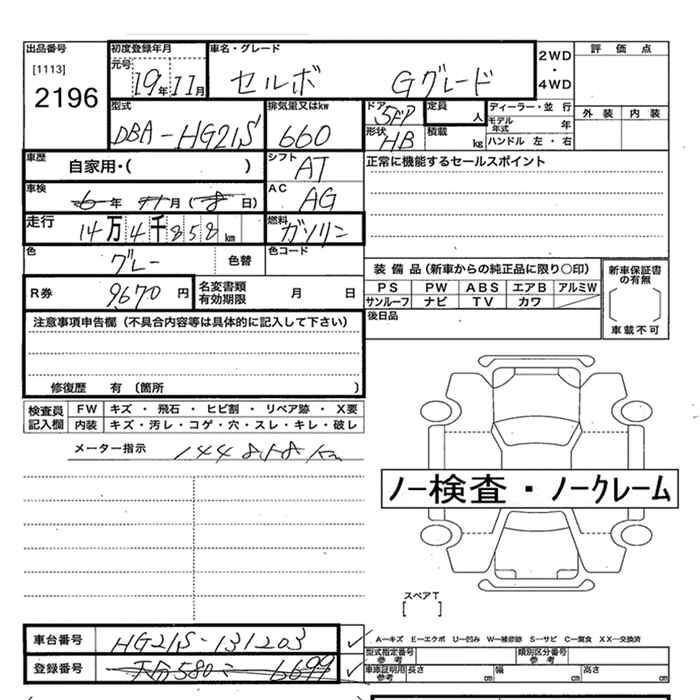 出品番号
[1113]
2196
初度登録年月
元号
19年11月
車名・グレード
セルボ Gグレード
2WD
・
4WD
評価点
外装 内装
型式
DBA-HG21S
排気量又はkw
660
ドア
5ドア
形状
HB
定員
人
積載
kg
ディーラー・並行
モデル年式 年
ハンドル 左・右
車歴
自家用・( )
シフト
AT
正常に機能するセールスポイント
車検
6年 11月 (8日)
AC
AG
走行
14万4千858km
燃料
ガソリン
色
グレー
色替
色コード
R券
9670円
名変書類有効期限
月 日
装備品(新車からの純正品に限り○印)
PS PW ABS エアB アルミW
サンルーフ ナビ TV カワ
後日品
新車保証書の有無
車載不可
注意事項申告欄(不具合内容等は具体的に記入して下さい)
修復歴 有 (箇所 )
検査員記入欄
FW キズ・飛石・ヒビ割・リペア跡・X要
内装 キズ・汚レ・コゲ・穴・スレ・キレ・破レ
メーター指示
km
ノー検査・ノークレーム
スペアT
[ ]
車台番号
HG21S-131203
A-キズ E-エクボ U-凹み W-補修跡 S-サビ C-腐食 XX-交換済
型式指定番号
参考
類別区分番号
参考
登録番号
大分580に 6699
車庫証明用
参考
長さ cm 幅 cm 高さ cm